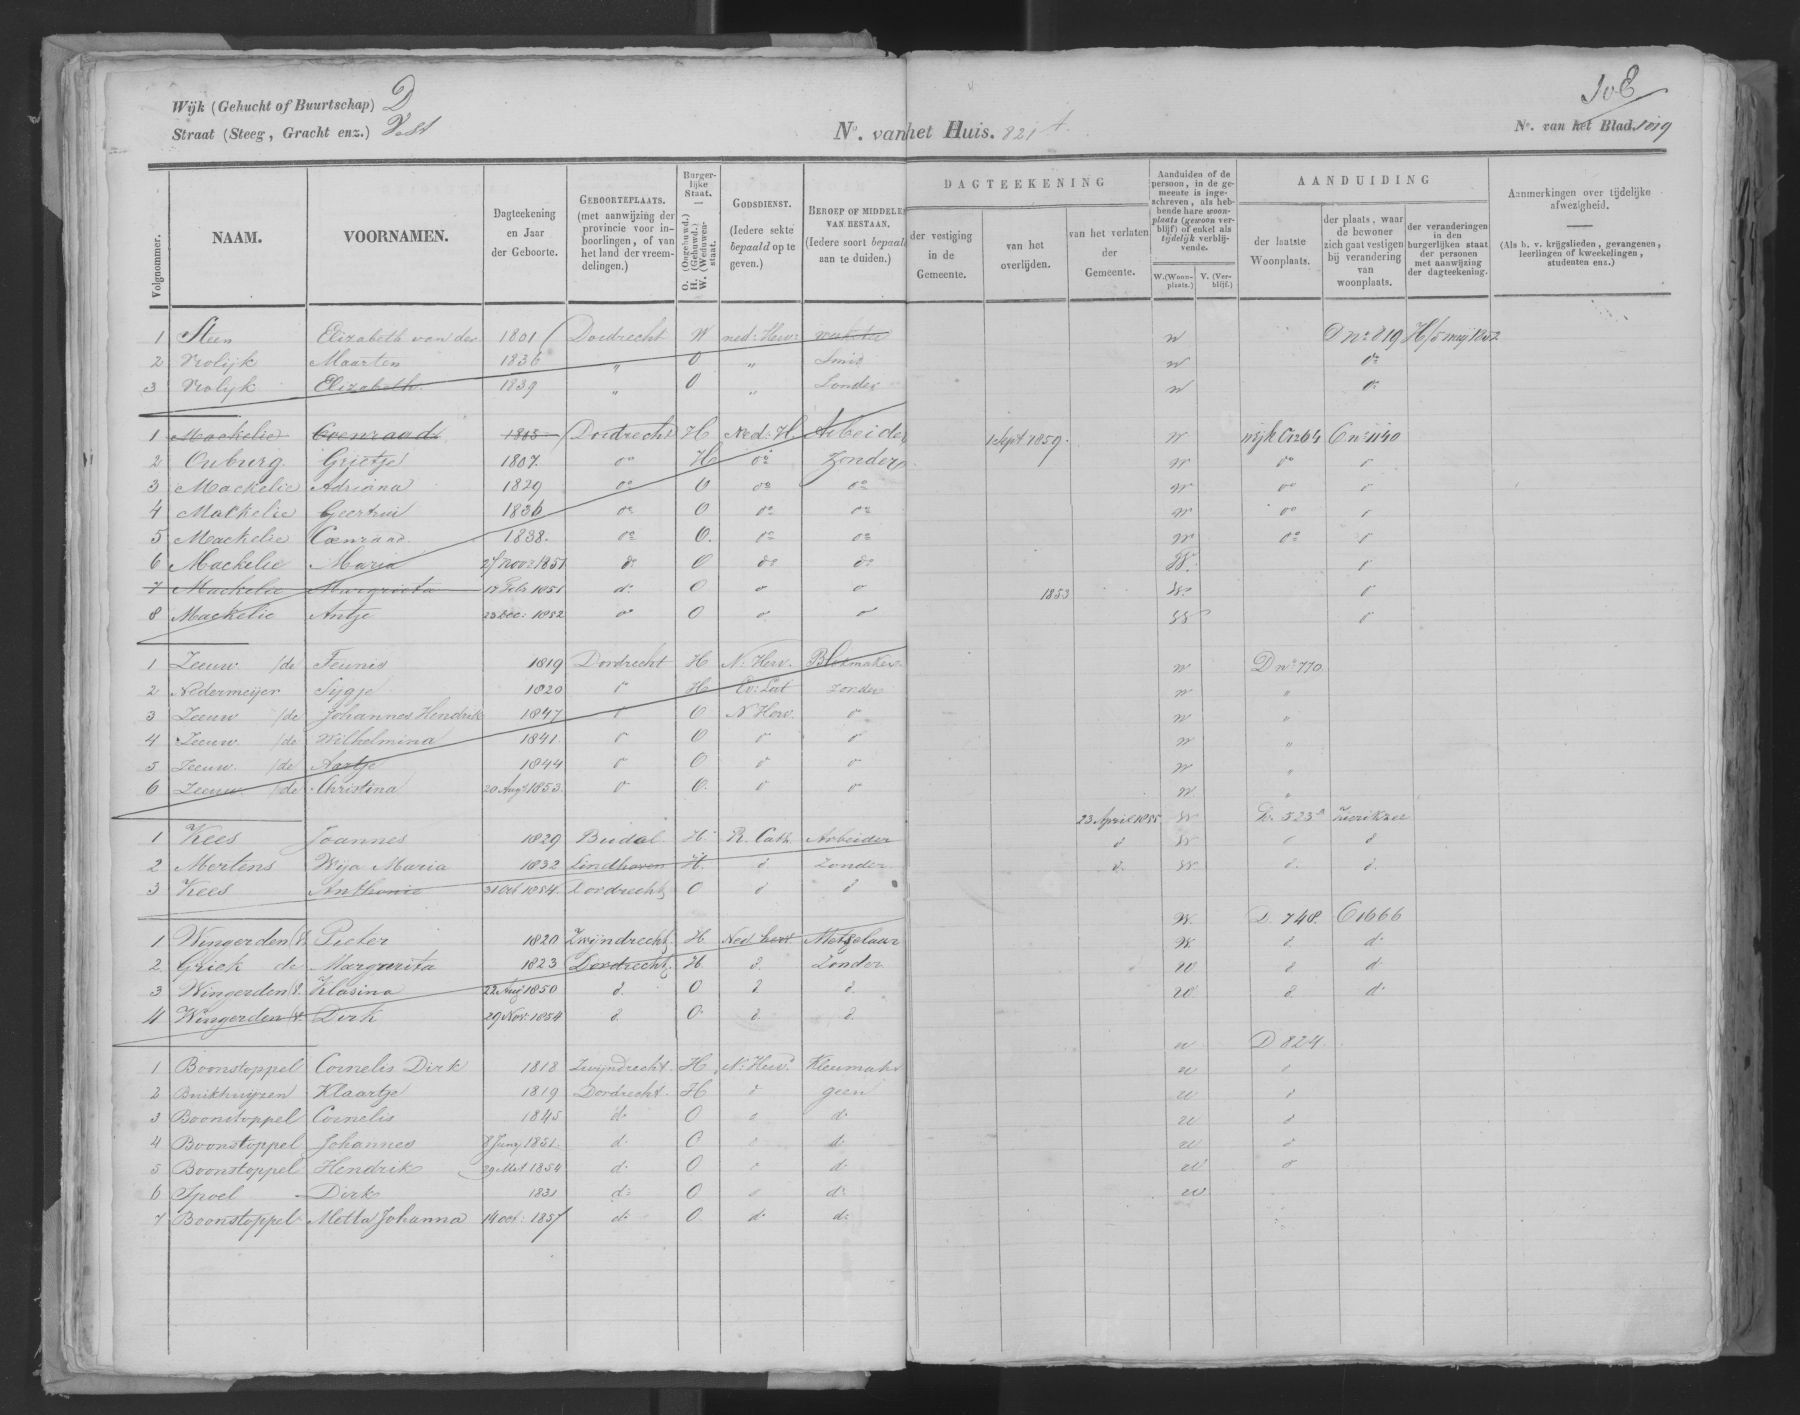 Wijk (Gehucht of Buurtschap) D
Straat (Steeg, Gracht enz.) Vest
No. van het Huis. 821 A.
No. van het Blad. 1019
Volgnommer.
NAAM.
VOORNAMEN.
Dagteekening en Jaar der Geboorte.
GEBOORTEPLAATS. (met aanwijzing der provincie voor inboorlingen, of van het land der vreemdelingen.)
Burgerlijke Staat. O. (Ongehuwd.) H. (Gehuwd.) W. (Weduwenstaat.
GODSDIENST. (Iedere sekte bepaald op te geven.)
BEROEP OF MIDDELEN VAN BESTAAN. (Iedere soort bepaald aan te duiden.)
DAGTEEKENING
der vestiging in de Gemeente.
van het overlijden.
van het verlaten der Gemeente.
Aanduiden of de persoon, in de gemeente is ingeschreven, als hebbende hare woonplaats (gewoon verblijf) of enkel als tijdelijk verblijvende.
W. (Woonplaats.) V. (Verblijf.)
AANDUIDING
der laatste Woonplaats.
der plaats, waar de bewoner zich gaat vestigen bij verandering van woonplaats.
der veranderingen in den burgerlijken staat der personen met aanwijzing der dagteekening.
Aanmerkingen over tijdelijke afwezigheid.
(Als b. v. krijgslieden, gevangenen, leerlingen of kweekelingen, studenten enz.)
1 Steen Elizabeth van der 1801 Dordrecht W ned: Herv: werkster w D no 819 H/5 meij 1852
2 Vrolijk Maarten 1836 " O " Smid w do
3 Vrolijk Elizabeth 1839 " O " Zonder w do
1 Mackelie Coenraad 1803 Dordrecht H Ned: H. Arbeider 1 Sept 1859. w wijk C no 1140
2 Onburg Grietje 1807. do H do Zonder w do d
3 Mackelie Adriana 1829 do O do do w do d
4 Mackelie Geertrui 1836 do O do do w do d
5 Mackelie Coenraad 1838. do O. do do w do d
6 Mackelie Maria 27 Nov: 1851 do O do do W. d
7 Mackelie Margrieta 17 Feb 1851 d: O d d 1853 W. d
8 Mackelie Antje 23 Dec: 1852 do O d d W d
1 Zeeuw /de Teunis 1819 Dordrecht H N. Herv. Blokmaker w D no 770
2 Nedermeijer Sijgje 1820 d H Ev: Lut zonder w "
3 Zeeuw /de Johannes Hendrik 1847 d O N Herv. d w "
4 Zeeuw. /de Wilhelmina 1841 d O d d w "
5 Zeeuw. /de Aartje 1844 d O d d w "
6 Zeeuw. /de Christina 20 Aug 1853. d O. d d w "
1 Kees Joannes 1829 Budel H. R. Cath. Arbeider 23 April 1855 W D. 523 Zierikzee
2 Mertens Wija Maria 1832 Eindhoven H. d Zonder d W d d
3 Kees Anthonie 31 Oct 1854. Dordrecht O d d d. W d. d.
1 Wingerden /v. Pieter 1820 Zwijndrecht H Ned herv. Metzelaar W. D. 748. C 1666
2 Griek de Margarita 1823 Dordrecht H d. Zonder W. d. d.
3 Wingerden /v. Klasina 22 Aug 1850 d. O d d. W d d
4 Wingerden /v. Dirk 29 Nov. 1854 d. O. d. d. W d. d.
1 Boonstoppel Cornelis Dirk 1818 Zwijndrecht. H N: Herv. w D 824
2 Buikhuijzen Klaartje 1819 Dordrecht. H d geen w d
3 Boonstoppel Cornelis 1845 d: O d d: w d
4 Boonstoppel Johannes 8 Junij 1851. d: O d d: w d
5 Boonstoppel Hendrik 29 Mrt 1854 d: O d d: w d
6 Spoel Dirk 1831 d: O d d: w d
7 Boonstoppel Metta Johanna 14 oct: 1857 d: O d: d: w